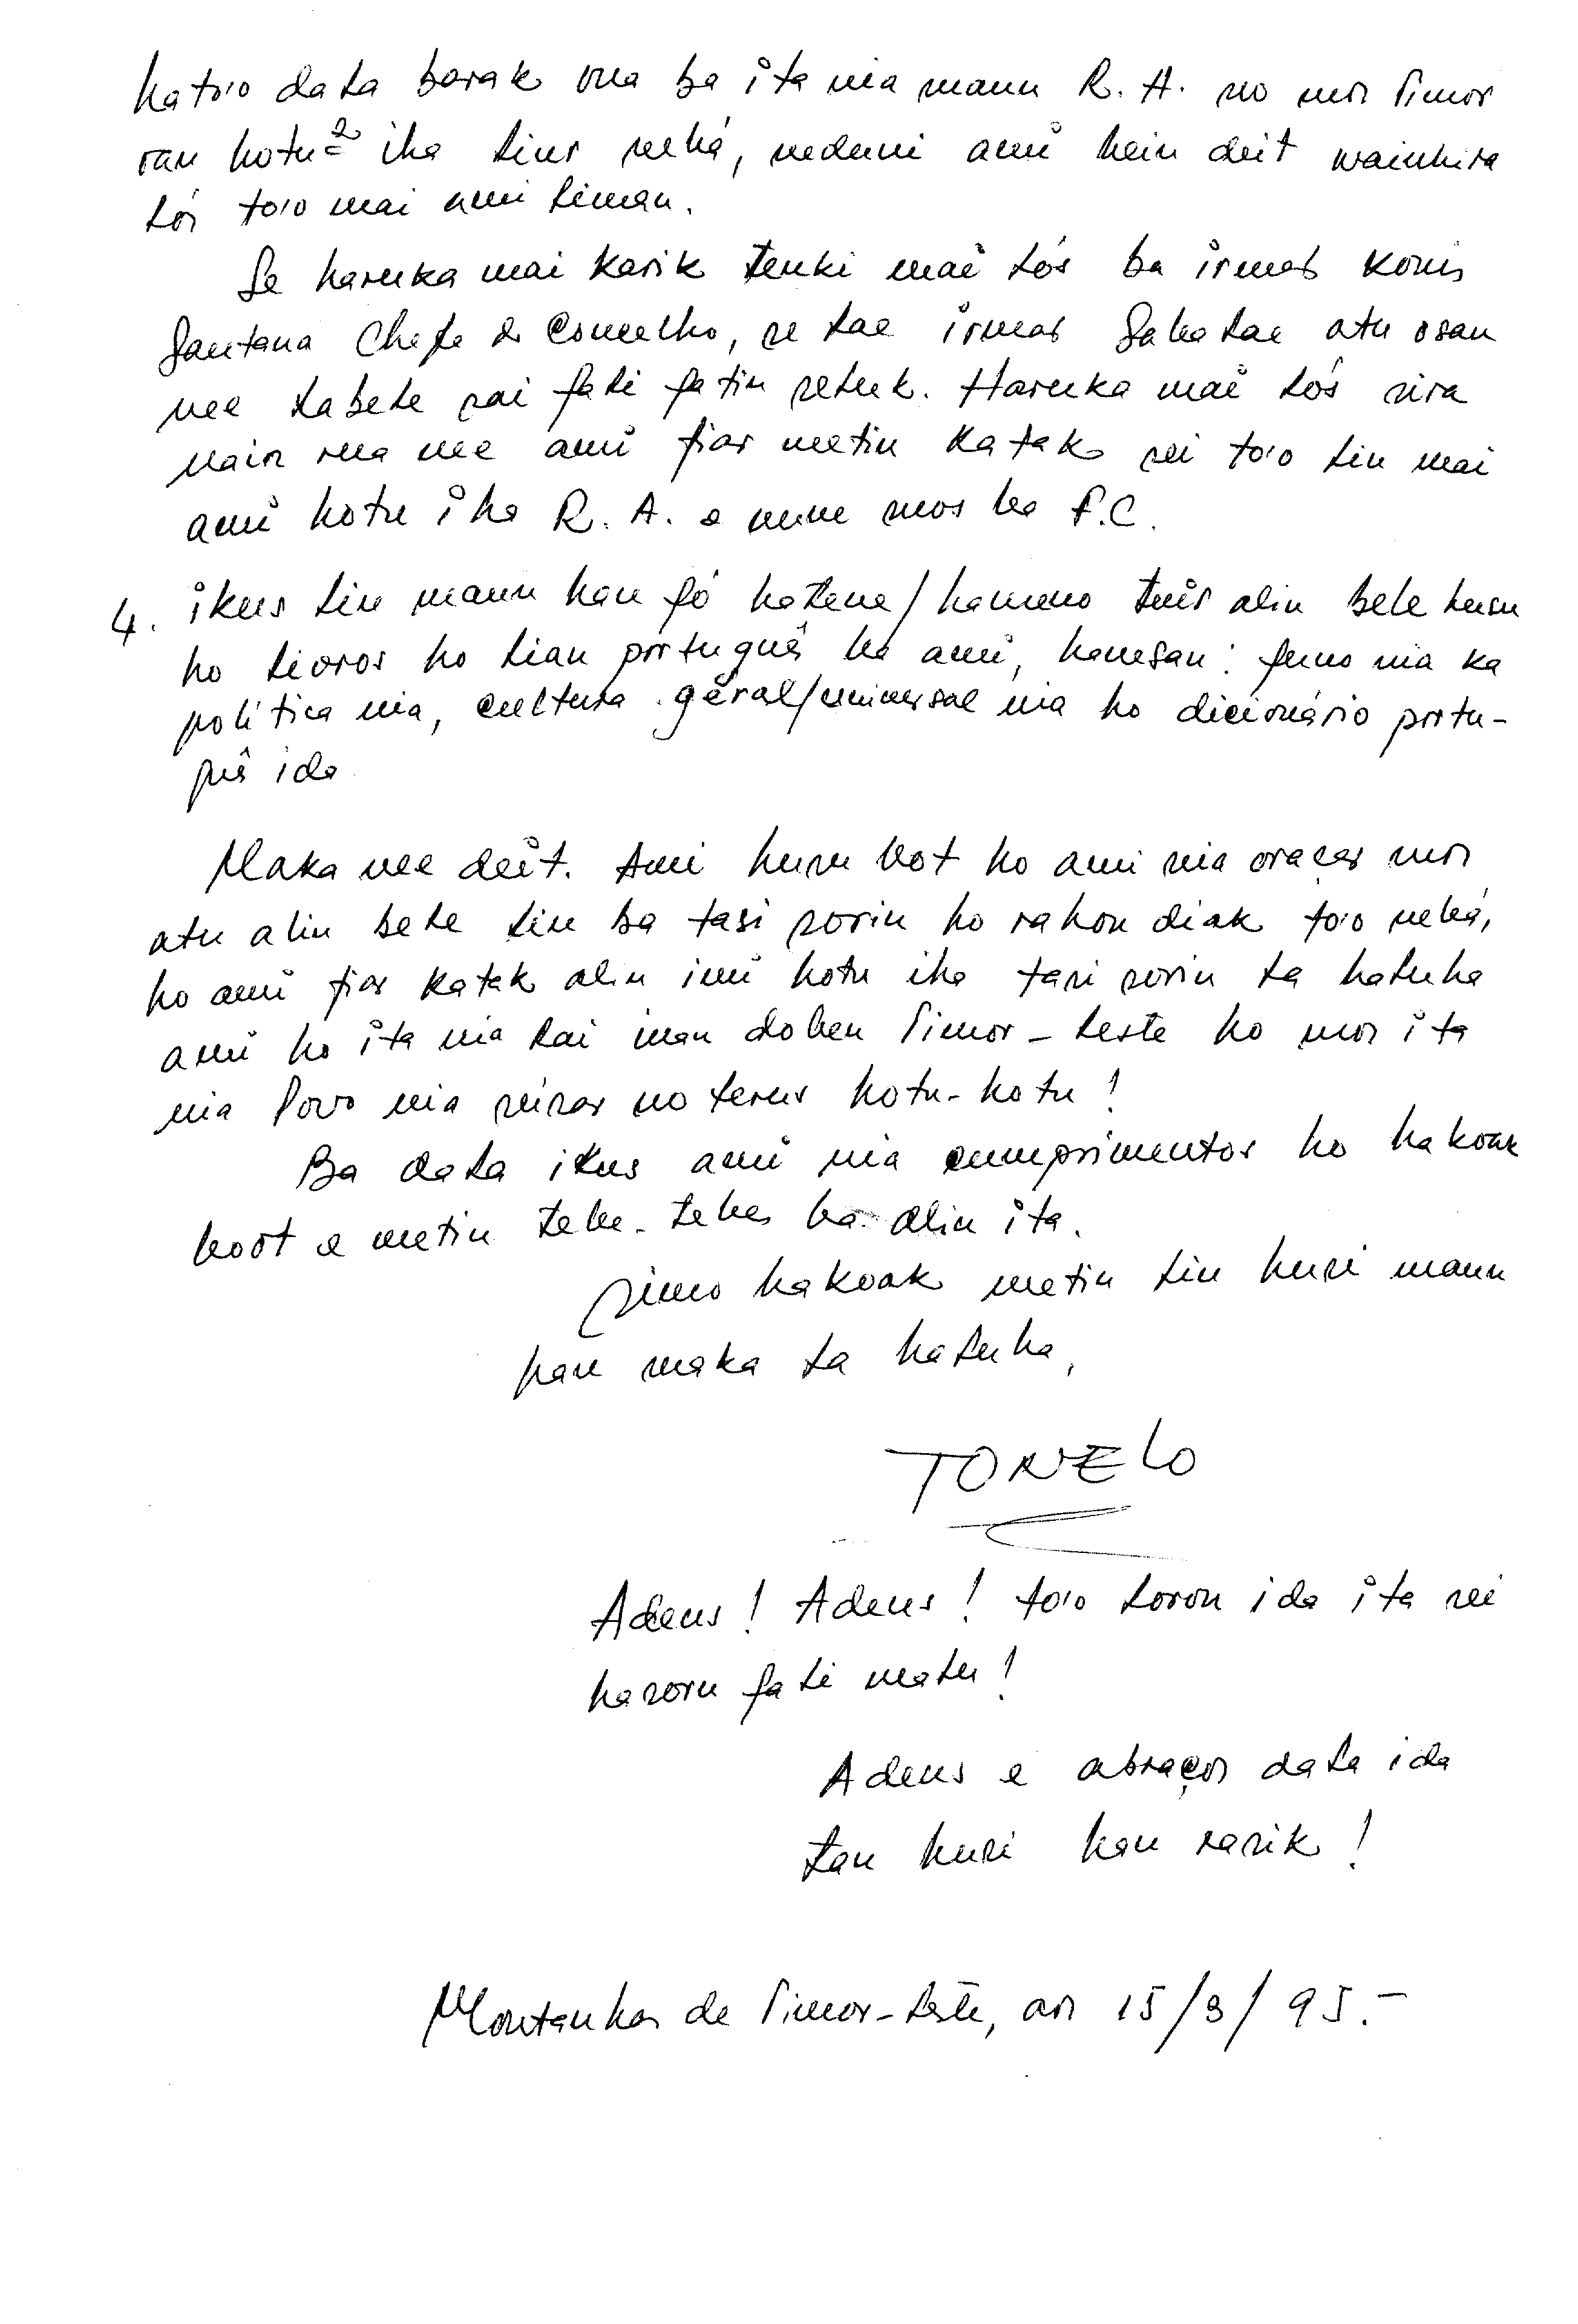 hato'o dala barak ona ba ita nia maun R. A. no mos Timor
oan hotu² iha liur nebá, neduni ami hein deit wainhira
lós to'o mai ami liman.
Se haruka mai karik tenki mai lós ba irmão Konis
Santana Chefe do Concelho, se lae irmão Sabalae atu osan
nee labele sai fali fatin seluk. Haruka mai lós sira
nain rua nee ami fiar metin katak sei to'o liu mai
ami hotu iha R. A. e nune mos ba F.C.
4. ikus liu maun hau fó hatene/hameno tuir alin bele husu
ho livros ho lian português ba ami, hanesan: funo nia ka
política nia, cultura geral/universal nia ho dicionário portu-
guês ida
Maka nee deit. Ami husu bot ho ami nia orações mos
atu alin bele liu ba tasi sorin ho rahon diak to'o nebá,
ho ami fiar katak alin imi hotu iha tasi sorin la haluha
ami ho ita nia rai inan doben Timor-Leste ho mos ita
nia Povo nia susar no terus hotu-hotu!
Ba dala ikus ami nia cumprimentos ho hakoak
boot e metin tebe-tebes ba alin ita.
Simo hakoak metin liu husi maun
hau maka la haluha,
TONELO
Adeus! Adeus! to'o loron ida ita sei
hasoru fali malu!
Adeus e abraços dala ida
tan husi hau rasik!
Montanhas de Timor-Leste, aos 15/3/95.-